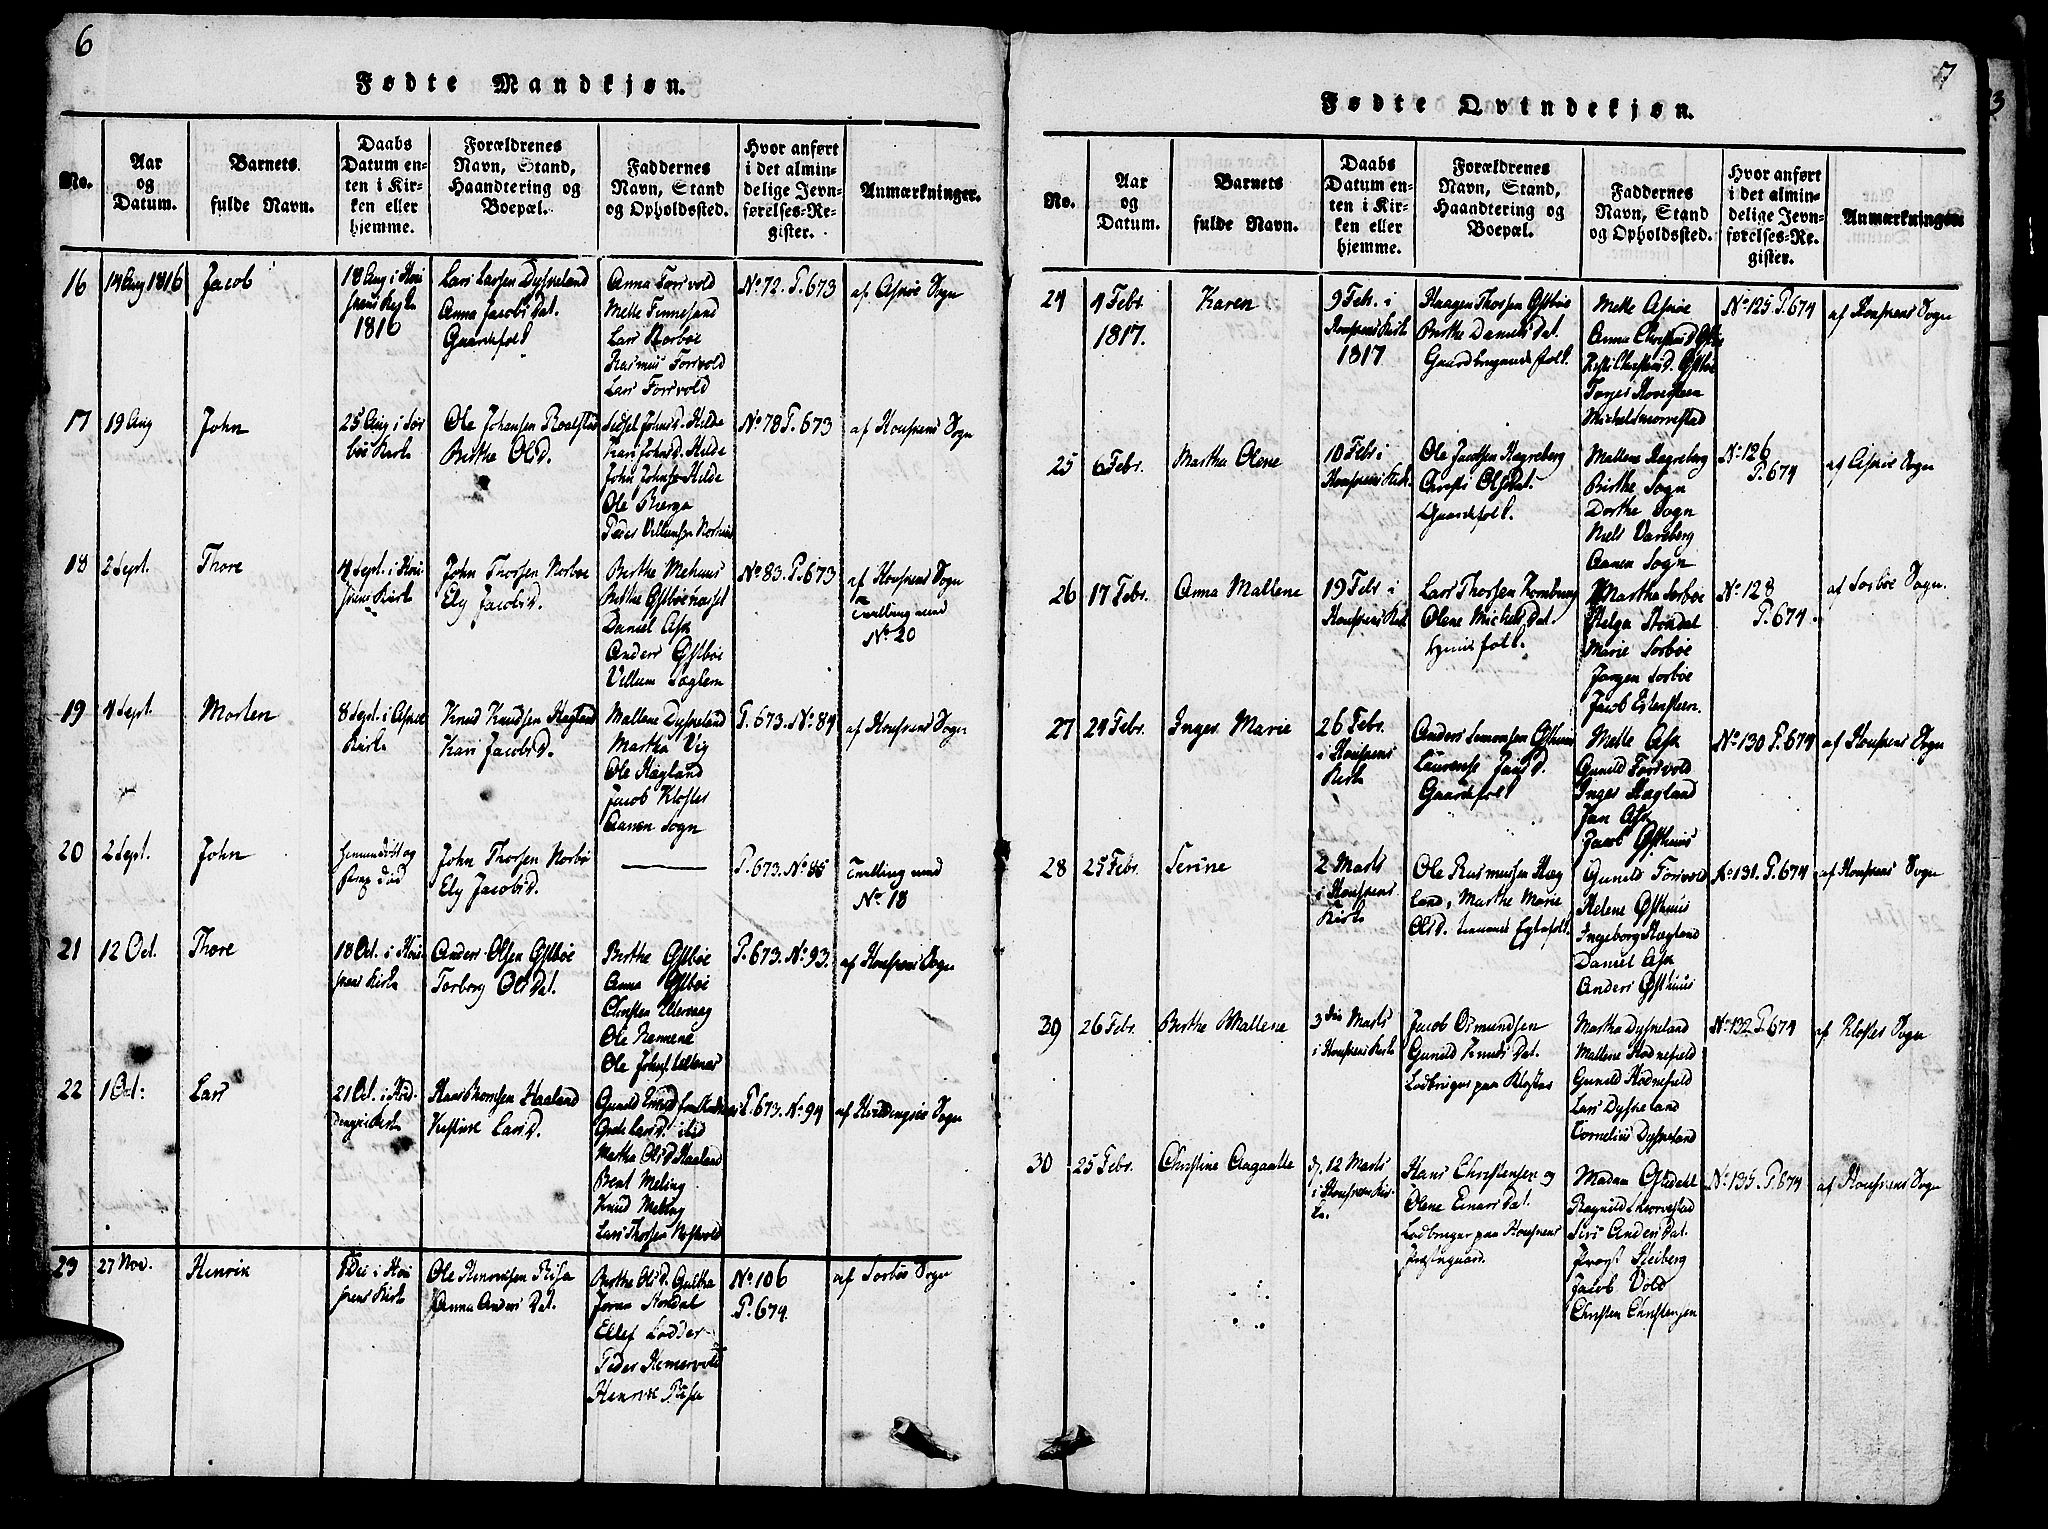 6
Fødte Mandkjøn.
No.
Aar
og
Datum.
Barnets
fulde Navn.
Daabs
Datum en-
ten i Kir-
ken eller
hjemme.
Forældrenes
Navn, Stand,
Haandtering og
Boepæl.
Faddernes
Navn, Stand
og Opholdssted.
Hvor anført
i det almin-
delige Jevn-
førelses-Re-
gister.
Anmærkninger.
16
14 Aug 1816
Jacob
18 Aug i
1816
Lars Larsen Dysneland
Anna Jacobs Dat.
Gaardfolk
Anna Torsvold
Mette Finnesand
Lars Norbøe
Rasmus Torsvold
Lars Torsvold
No 72. P. 673
af Asøe Sogn
17
19 Aug
John
25 Aug i Sør
bøe Kirke
Ole Johansen Roalstad
Birthe Ols D.
Sidsel Johns D. Helde
Kari Johns D. Helde
John Johnse Helde
Ole Berge
No 78 P. 673
af Sogn
18
2 Sept.
Thore
4 Sept. i
Kirke
John Thorsen Norbøe
Ely Jacobs D.
Birthe Mehuus
Birthe Østbøenæsset
Daniel Ask
Anders Østbøe
Villum Sæglem
No 83. P. 673
af Sogn
Tvilling med
No 20
19
4 Sept.
Morten
8 Sept. i
Kirke
Knud Knudsen Hægland
Kari Jacobs D.
Mallene Dysneland
Martha Vig
Ole Hægland
Jacob Kloster
Aanen Sogn
P. 673. No 84
af Sogn
20
2 Sept.
John
hjemmedøbt og
død
John Thorsen Norbøe
Ely Jacobs D.
P. 673. No 88
Tvilling med
No 18
21
12 Oct.
Thore
18 Oct. i
Kirke
Anders Olsen Østbøe
Torborg Ols Dat.
Birthe Østbøe
Anna Østbøe
Christen
Ole
Ole Johns.
P. 673. No 93.
af Sogn
22
1 Oct:
Lars
21 Oct. i
Kirke
Hans Thomsen Haaland
Kirstine Lars D.
Gunild
Grete Lars D. ibid
Martha Ols D. Haaland
Bent Meling
Knud Meling
Lars Thorsen
P. 673. No 94
af Hvidingsøe Sogn
23
27 Nov.
Henrik
1 Dec i
Kirke
Ole Henriksen Risa
Anna Anders Dat.
Birthe Ols D.
Jorna Stordal
Ellef Lodder
Peder Hemervold
Henrik Risa
No 106
P. 674.
af Sorbøe Sogn
7
Fødte Qvindekjøn.
No.
Aar
og
Datum.
Barnets
fulde Navn.
Daabs
Datum en-
ten i Kir-
ken eller
hjemme.
Forældrenes
Navn, Stand,
Haandtering og
Boepæl.
Faddernes
Navn, Stand
og Opholdssted.
Hvor anført
i det almin-
delige Jevn-
førelses-Re-
gister.
Anmærkninger.
24
4 Febr.
1817.
Karen
9 Feb. i
Kirke
1817
Haagen Thorsen Østbøe
Birthe Daniels Dat.
Gaardbrugende folk.
Mette
Anna Christens D.
Christens D. Østbøe
Torjer
Michel
No 125. P. 674
af Sogn
25
6 Febr.
Martha Olene
10 Febr i
Kirk.
Ole Jacobsen Hægreberg
Christi Ols Dat.
Gaardfolk.
Mallene Hægreberg
Birthe Sogn
Dorthe Sogn
Niels Vareberg
Aanen Sogn
No 126
P. 674
af Sogn
26
17 Febr.
Anna Mallene
19 Febr i
Kirk
Lars Thorsen
Olene Michels Dat.
Huusfolk.
Martha Sorbøe
Helga Stordal
Marie Sorbøe
Jørgen Sorbøe
Jacob Eitensteen.
No 128
P. 674.
af Sorbøe Sogn.
27
24 Febr.
Inger Marie
26 Febr.
i
Kirke
Anders Simonsen Østhuus
Laurense Jans D.
Gaardfolk
Mette Ask
Gunild Torsvold
Inger Hægland
Jan Ask
Jacob Østhuus
No 130 P. 674
af Sogn
28
25 Febr.
Serine
2 Marts
i
Kirke
Ole Rasmussen Hæg
land, Marthe Marie
Ols D.
Gunild Torsvold
Helene Østhuus
Ingeborg Hægland
Daniel Ask
Anders Østhuus
No 131. P. 674
af Sogn
39
26 Febr.
Birthe Mallene
3die Marts
i Kirke
Jacob Osmundsen
Gunild Knuds Dat.
Lodbruger paa Kloster
Martha Dysneland
Mallene Hodnefield
Gunild Hodnefield
Lars Dysneland
Cornelius Dysneland
No 132 P. 674
af Kloster Sogn
30
25 Febr.
Christine Aagaatte
d. 12 Marts
i
Hans Christensen og
Olene Einars Dat.
Lodbruger paa
Præstegaard.
Madam
Ragnild Skorvestad
Siri Anders Dat.
Provst
Jacob Vold
Christen Christensen
No 135. P. 674
af Sogn